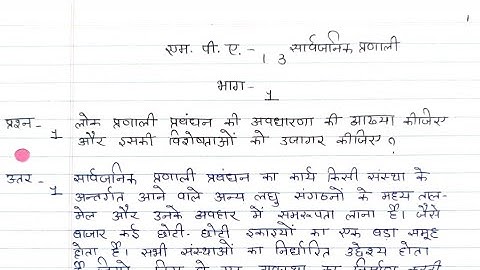 1
एम. पी. ए. - 13 सार्वजनिक प्रणाली
भाग - 1
प्रश्न - 1 लोक प्रणाली प्रबंधन की अवधारणा की व्याख्या कीजिए
और इसकी विशेषताओं को उजागर कीजिए ?
उतर - 1 सार्वजनिक प्रणाली प्रबंधन का कार्य किसी संस्था के
अन्तर्गत आने वाले अन्य लघु संगठनों के मध्य ताल-
मेल और उनके अवधार में समरूपता लाना है। जैसे
बाजार कई छोटी-छोटी इकाइयों का एक बडा समूह
होता है। सभी संस्थाओं का निर्धारित उद्देश्य होता